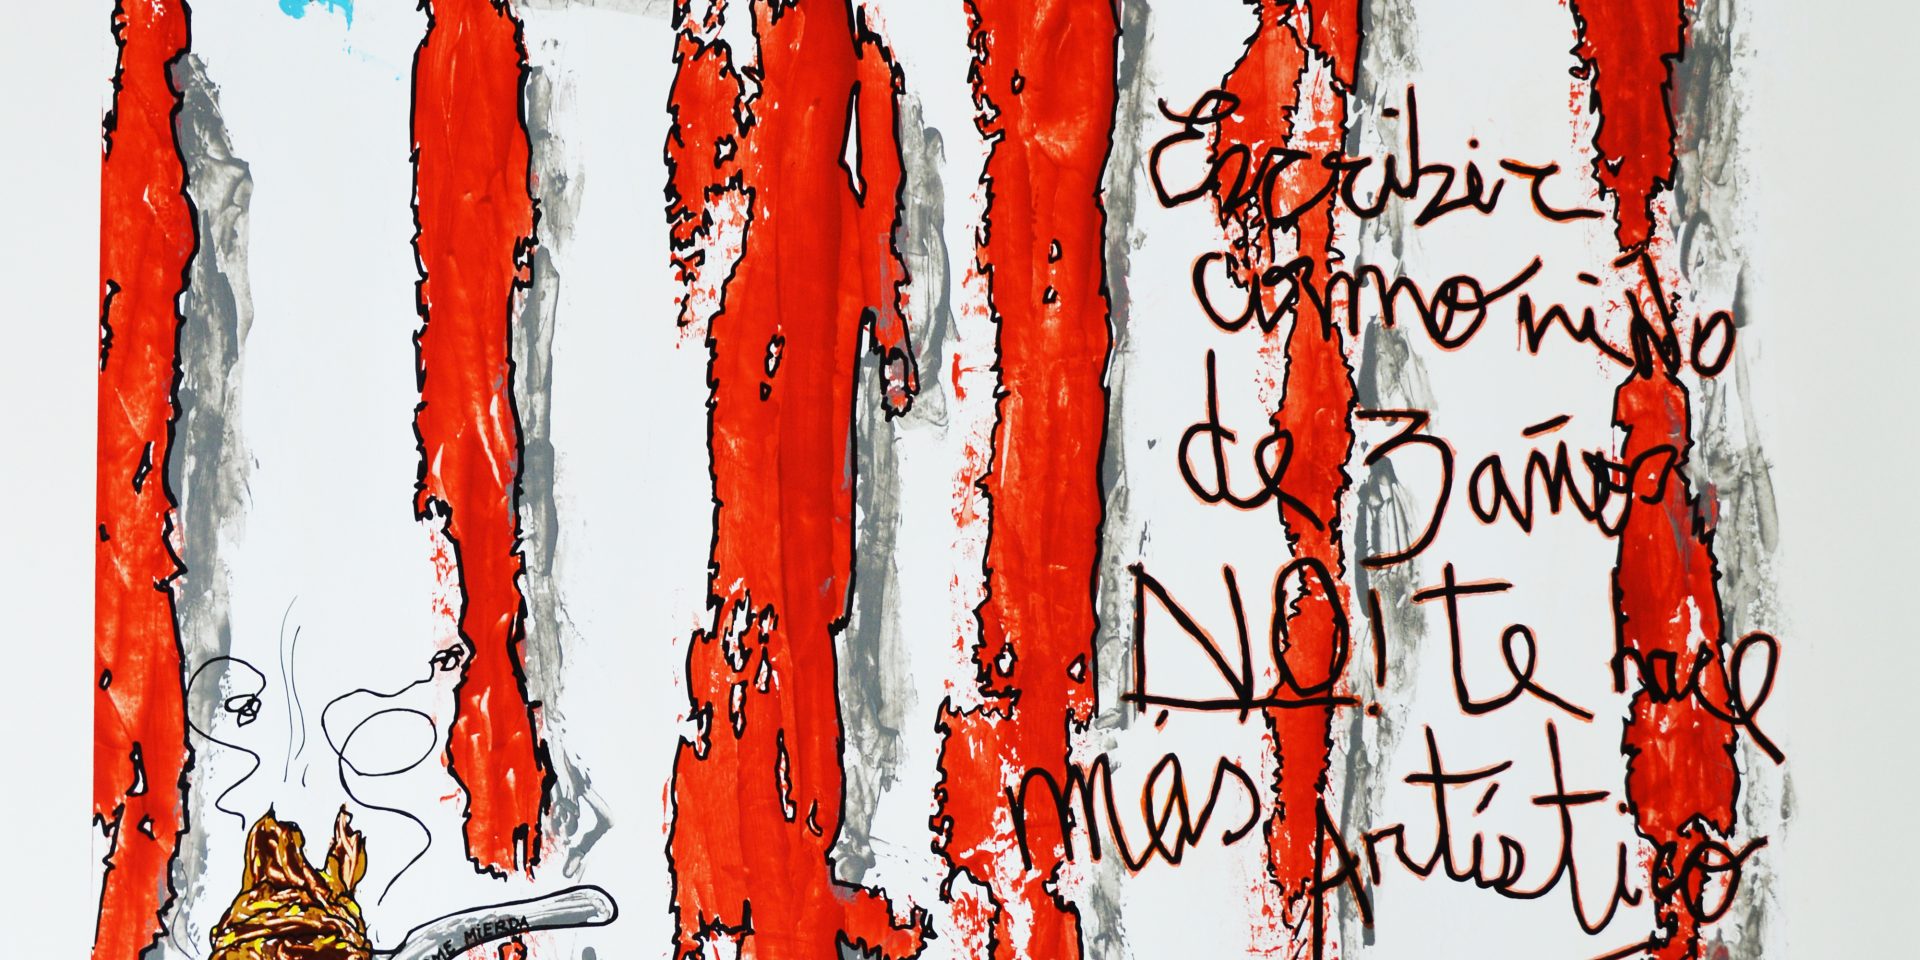 Escribir
como niño
de 3 años
NO! te hace
mas Artístico
ME MIERDA